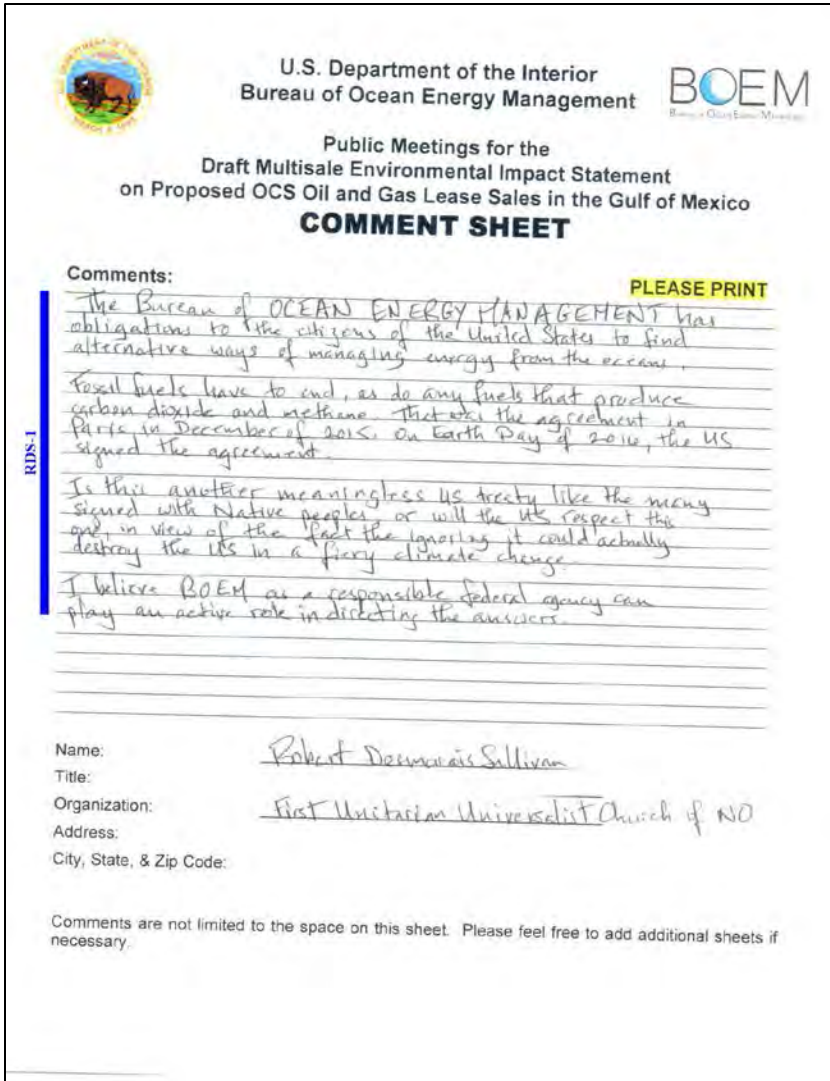 U.S. Department of the Interior
Bureau of Ocean Energy Management
BOEM
Public Meetings for the
Draft Multisale Environmental Impact Statement
on Proposed OCS Oil and Gas Lease Sales in the Gulf of Mexico
COMMENT SHEET
Comments:
PLEASE PRINT
The Bureau of OCEAN ENERGY MANAGEMENT has
obligations to the citizens of the United States to find
alternative ways of managing energy from the oceans.
Fossil fuels have to end, as do any fuels that produce
carbon dioxide and methane. That was the agreement in
Paris in December of 2015. On Earth Day of 2016, the US
signed the agreement.
Is this another meaningless US treaty like the many
signed with Native peoples or will the US respect this
one, in view of the fact the ignoring it could actually
destroy the US in a fiery climate change.
I believe BOEM as a responsible federal agency can
play an active role in directing the answers.
RDS-1
Name: Robert Desmarais Sullivan
Title:
Organization: First Unitarian Universalist Church of NO
Address:
City, State, & Zip Code:
Comments are not limited to the space on this sheet. Please feel free to add additional sheets if
necessary.